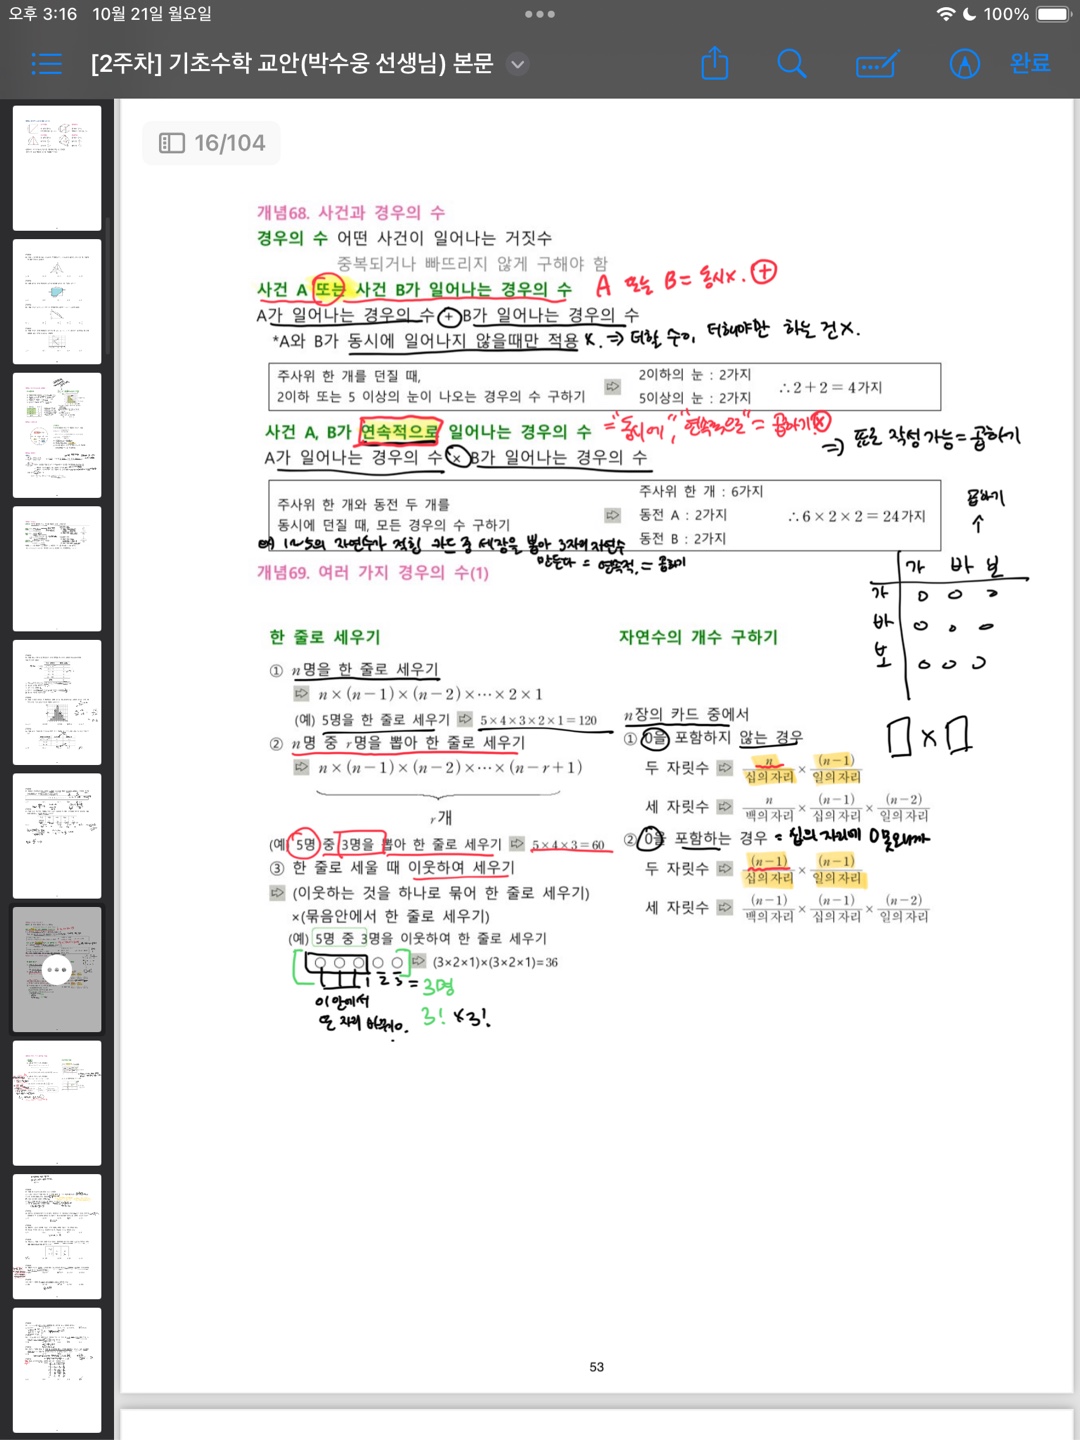 오후 3:16 10월 21일 월요일
100%
[2주차] 기초수학 교안(박수웅 선생님) 본문
완료
16/104
개념68. 사건과 경우의 수
경우의 수 어떤 사건이 일어나는 거짓수
중복되거나 빠뜨리지 않게 구해야 함
사건 A 또는 사건 B가 일어나는 경우의 수
A 또는 B = 동시x. +
A가 일어나는 경우의 수 + B가 일어나는 경우의 수
*A와 B가 동시에 일어나지 않을때만 적용
⇒ 더할 수이, 더해야만 하는 건 x.
주사위 한 개를 던질 때,
2이하 또는 5 이상의 눈이 나오는 경우의 수 구하기
⇨
2이하의 눈 : 2가지
5이상의 눈 : 2가지
∴2+2=4가지
사건 A, B가 연속적으로 일어나는 경우의 수
="동시에", "연속적으로" = 곱하기 x
⇒ 표로 작성가능 = 곱하기
A가 일어나는 경우의 수 × B가 일어나는 경우의 수
주사위 한 개와 동전 두 개를
동시에 던질 때, 모든 경우의 수 구하기
⇨
주사위 한 개 : 6가지
동전 A : 2가지
동전 B : 2가지
∴6×2×2=24가지
곱하기
↑
예) 1~5의 자연수가 적힌 카드 중 세장을 뽑아 3자리 자연수
만든다 = 연속적. = 곱하기
가 바 보
가 o o o
바 o o o
보 o o o
□ x □
개념69. 여러 가지 경우의 수(1)
한 줄로 세우기
① n명을 한 줄로 세우기
⇨ n×(n-1)×(n-2)×⋯×2×1
(예) 5명을 한 줄로 세우기 ⇨ 5×4×3×2×1=120
② n명 중 r명을 뽑아 한 줄로 세우기
⇨ n×(n-1)×(n-2)×⋯×(n-r+1)
r개
(예) 5명 중 3명을 뽑아 한 줄로 세우기 ⇨ 5×4×3=60
③ 한 줄로 세울 때 이웃하여 세우기
⇨ (이웃하는 것을 하나로 묶어 한 줄로 세우기)
×(묶음안에서 한 줄로 세우기)
(예) 5명 중 3명을 이웃하여 한 줄로 세우기
○○○○○ ⇨ (3×2×1)×(3×2×1)=36
1 2 3 = 3명
이 안에서
또 자리 바꿔야.
3! x3!
자연수의 개수 구하기
n장의 카드 중에서
① 0을 포함하지 않는 경우
두 자릿수 ⇨ n/십의자리 × (n-1)/일의자리
세 자릿수 ⇨ n/백의자리 × (n-1)/십의자리 × (n-2)/일의자리
② 0을 포함하는 경우 = 십의 자리에 0 못오니까
두 자릿수 ⇨ (n-1)/십의자리 × (n-1)/일의자리
세 자릿수 ⇨ (n-1)/백의자리 × (n-1)/십의자리 × (n-2)/일의자리
53